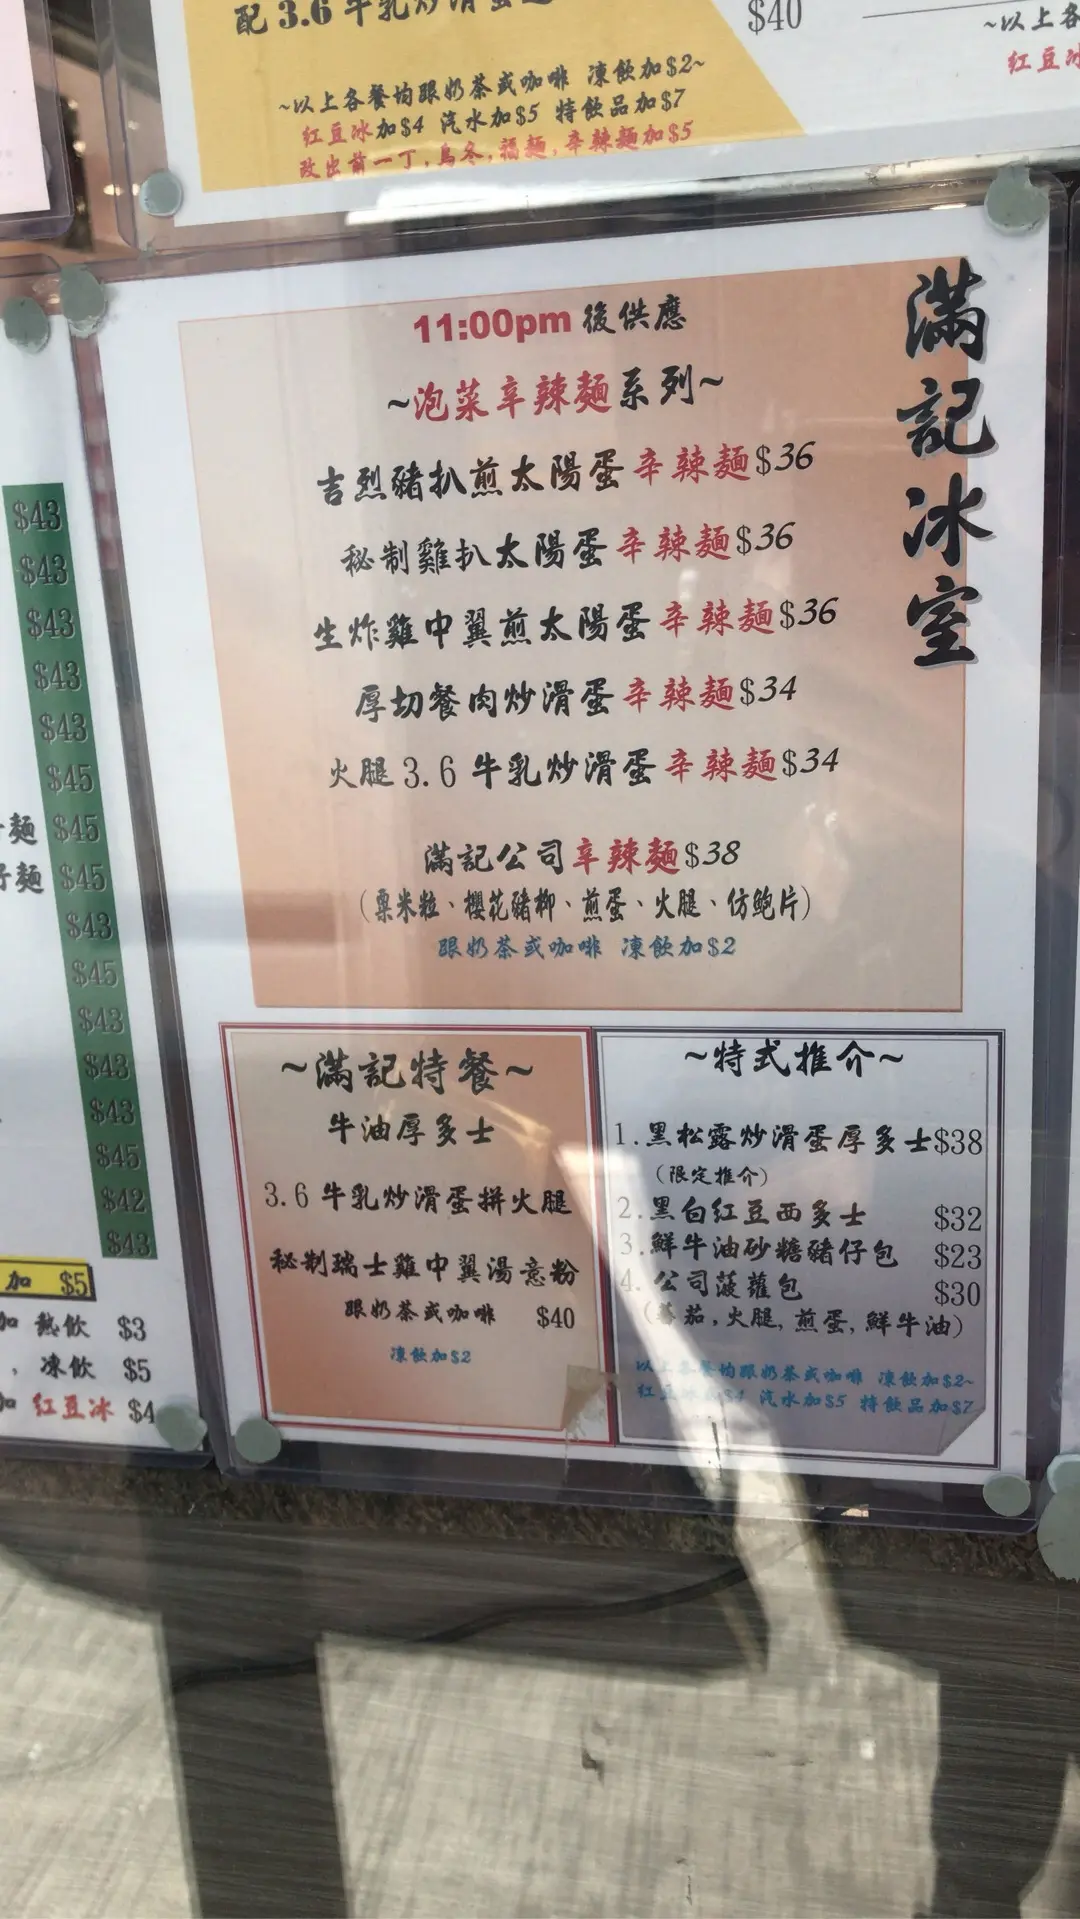 配 3.6 牛乳炒滑蛋
$40
~以上各餐均跟奶茶或咖啡 凍飲加$2~
紅豆冰加$4 汽水加$5 特飲品加$7
改出前一丁,烏冬,福麵,辛辣麵加$5
~以上各
紅豆冰
滿記冰室
11:00pm 後供應
~泡菜辛辣麵系列~
吉烈豬扒煎太陽蛋辛辣麵$36
秘制雞扒太陽蛋辛辣麵$36
生炸雞中翼煎太陽蛋辛辣麵$36
厚切餐肉炒滑蛋辛辣麵$34
火腿 3.6 牛乳炒滑蛋辛辣麵$34
滿記公司辛辣麵$38
(粟米粒、櫻花豬柳、煎蛋、火腿、仿鮑片)
跟奶茶或咖啡 凍飲加$2
~滿記特餐~
牛油厚多士
3.6 牛乳炒滑蛋拼火腿
秘制瑞士雞中翼湯意粉
跟奶茶或咖啡 $40
凍飲加$2
~特式推介~
1.黑松露炒滑蛋厚多士$38
(限定推介)
2.黑白紅豆西多士 $32
3.鮮牛油砂糖豬仔包 $23
4. 公司菠蘿包 $30
(蕃茄,火腿,煎蛋,鮮牛油)
以上各餐均跟奶茶或咖啡 凍飲加$2~
紅豆冰加$4 汽水加$5 特飲品加$7
$43
$43
$43
$43
$43
$45
麵 $45
仔麵 $45
$43
$45
$43
$43
$43
$45
$42
$43
加 $5
加 熱飲 $3
, 凍飲 $5
加 紅豆冰 $4